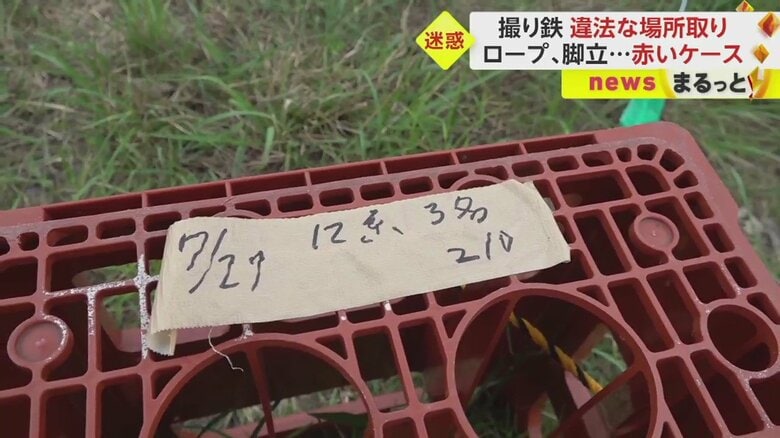 迷惑
撮り鉄 違法な場所取り
ロープ、脚立…赤いケース
news まるっと
7/27
210